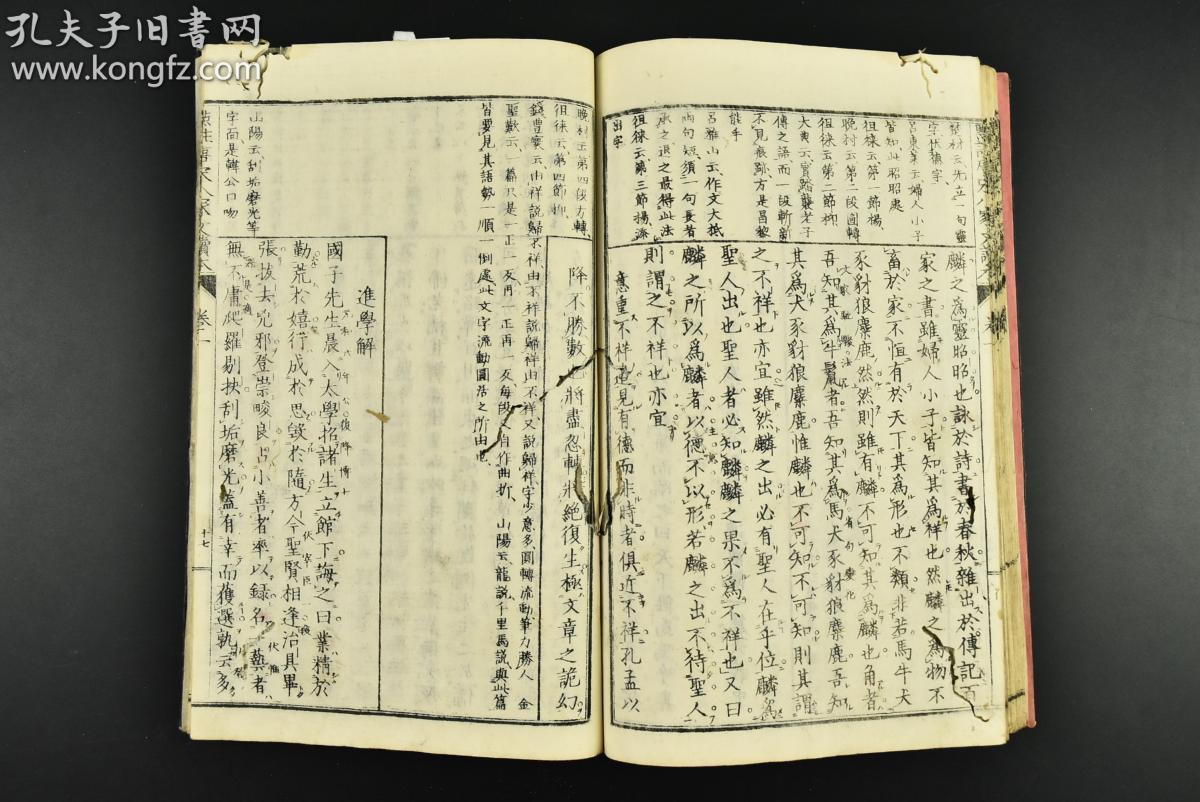 孔夫子旧書网
www.kongfz.com
村云先立一句靈
字伏德字
呂東萊云婦人小子
皆知此昭昭處
徂徠云第一節揚
晚村云第二段圓轉
徂徠云第二節抑
大典云實踏襲老子
傳之語而一段斬新
不見痕跡方是昌黎
能手
呂雅山云作文大抵
兩句短須一句長者
承之退之最得此法
徂徠云第三節揚添
出字
麟之爲靈昭昭也詠於詩書於春秋雜出於傳記百
家之書雖婦人小子皆知其爲祥也然麟之爲物不
畜於家不恒有於天下其爲形也不類非若馬牛犬
豕豺狼麋鹿然然則雖有麟不可知其爲麟也角者
吾知其爲牛鬣者吾知其爲馬犬豕豺狼麋鹿吾知
其爲犬豕豺狼麋鹿惟麟也不可知不可知則其謂
之不祥也亦宜雖然麟之出必有聖人在乎位麟爲
聖人出也聖人者必知麟麟之果不爲不祥也又曰
麟之所以爲麟者以德不以形若麟之出不待聖人
則謂之不祥也亦宜
意重不祥邊見有德而非時者俱近不祥孔孟以
晚村云第四段方轉
徂徠云第四節抑
錢豐寰云由祥說歸不祥由不祥說歸祥由不祥又說歸祥字少意多圓轉流動筆力勝人 金
聖歎云一篇只是一正一反再一正再一反每段又自作曲折 山陽云龍說千里馬說與此篇
皆要見其語勢一順一倒處此文字流動圓活之所由也
山陽云刮垢磨光等
字面是韓公口吻
降不勝數也將盡忽轉將絕復生極文章之詭幻
進學解
國子先生晨入太學招諸生立館下誨之曰業精於
勤荒於嬉行成於思毀於隨方今聖賢相逢治具畢
張拔去兇邪登崇畯良占小善者率以録名一藝者
無不庸爬羅剔抉刮垢磨光蓋有幸而獲選孰云多
卷一
十七